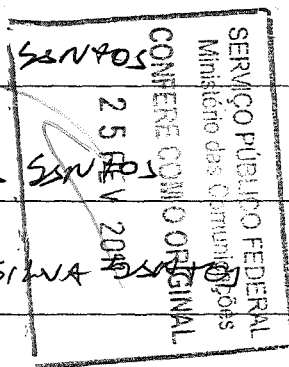 SANTOS
SANTOS
SILVA SANTOS
SERVIÇO PÚBLICO FEDERAL
Ministério das Comunicações
CONFERE COMO ORIGINAL
25 FEV 201